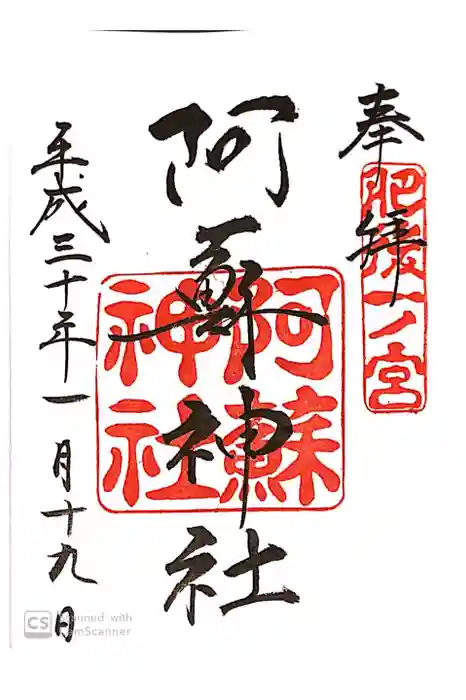 奉拝
肥後一ノ宮
阿蘇神社
阿蘇神社
平成三十年一月十九日
CS Scanned with
CamScanner